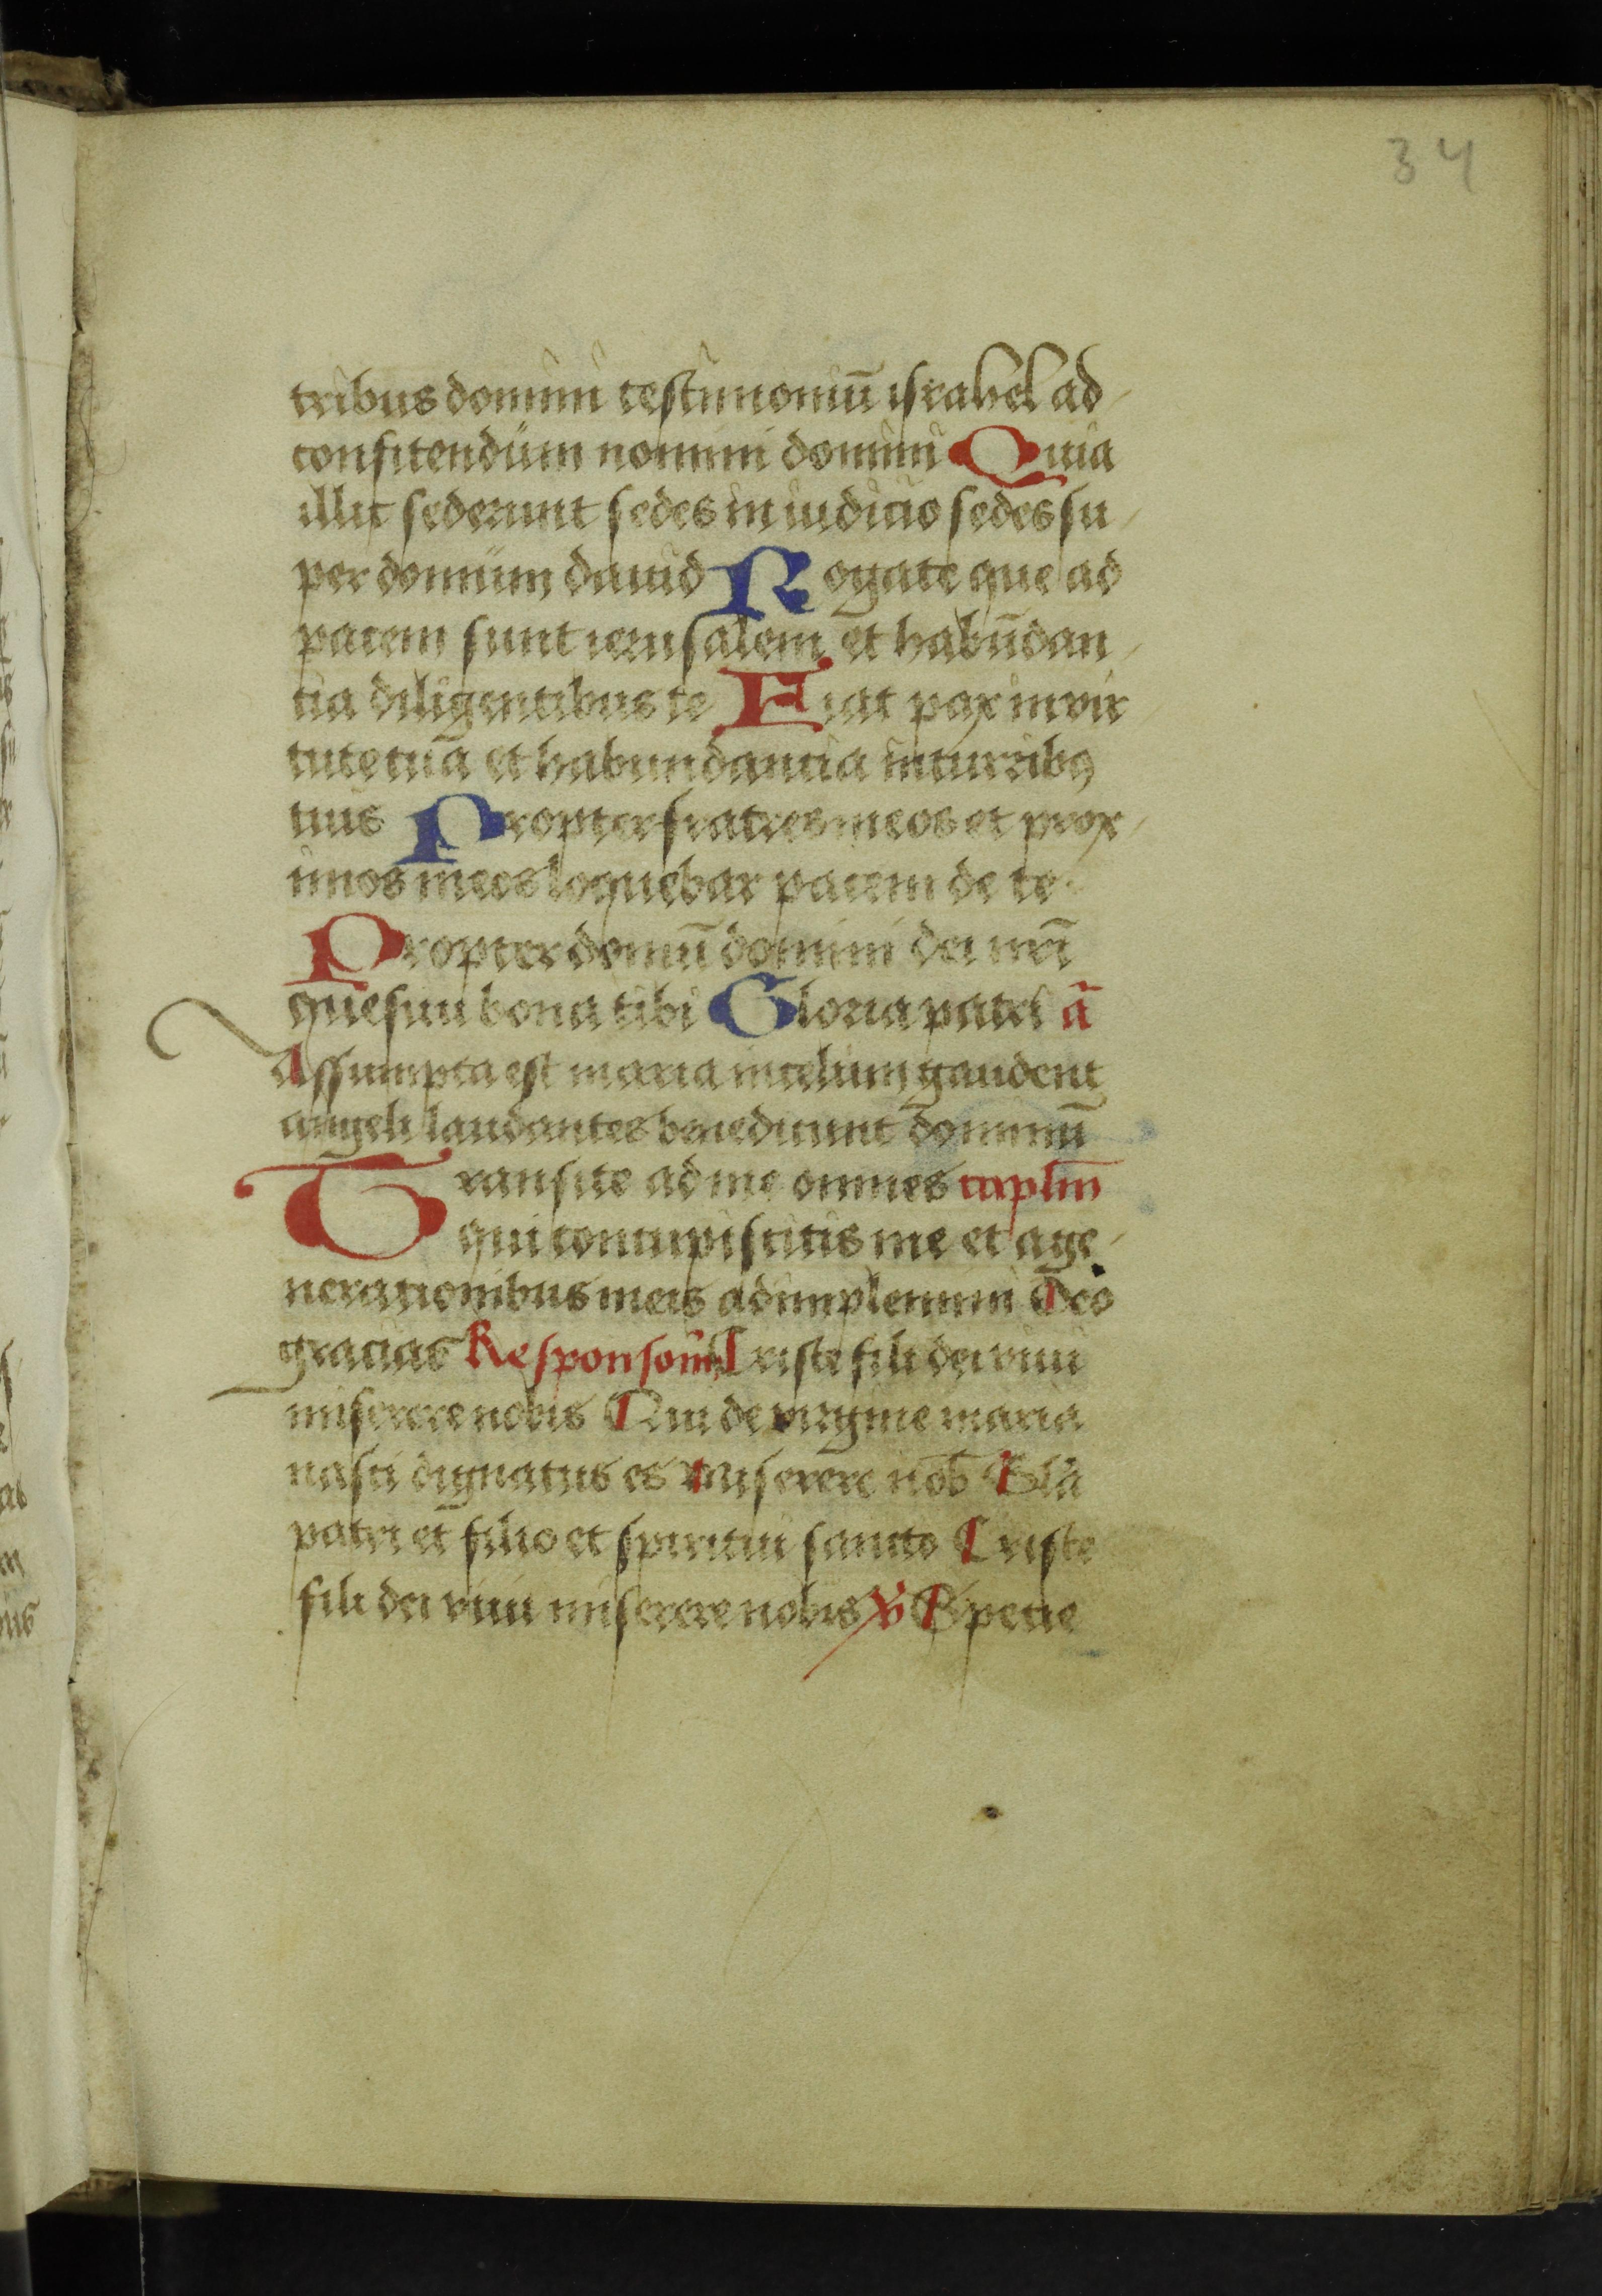 34
tribus domini testimoniū israhel ad
confitendum nomini domini Quia
illic sederunt sedes in iudicio sedes su
per domum dauid Rogate que ad
pacem sunt ierusalem et habūdan
tia diligentibus te Fiat pax in vir
tute tua et habundantia in turribꝯ
tuis Propter fratres meos et prox
imos meos loquebar pacem de te
Propter domū domini dei nr̄i
quesiui bona tibi Gloria patri ā
Assumpta est maria in celum gaudent
angeli laudantes benedicunt dominū
Transite ad me omnes capl̄m
qui concupiscitis me et a ge
nerationibus meis adimplemini Deo
gracias Responsoriū Criste fili dei viui
miserere nobis Qui de virgine maria
nasci dignatus es Miserere nob̄ Glā
patri et filio et spiritui sancto Criste
fili dei viui miserere nobis ℣ Specie